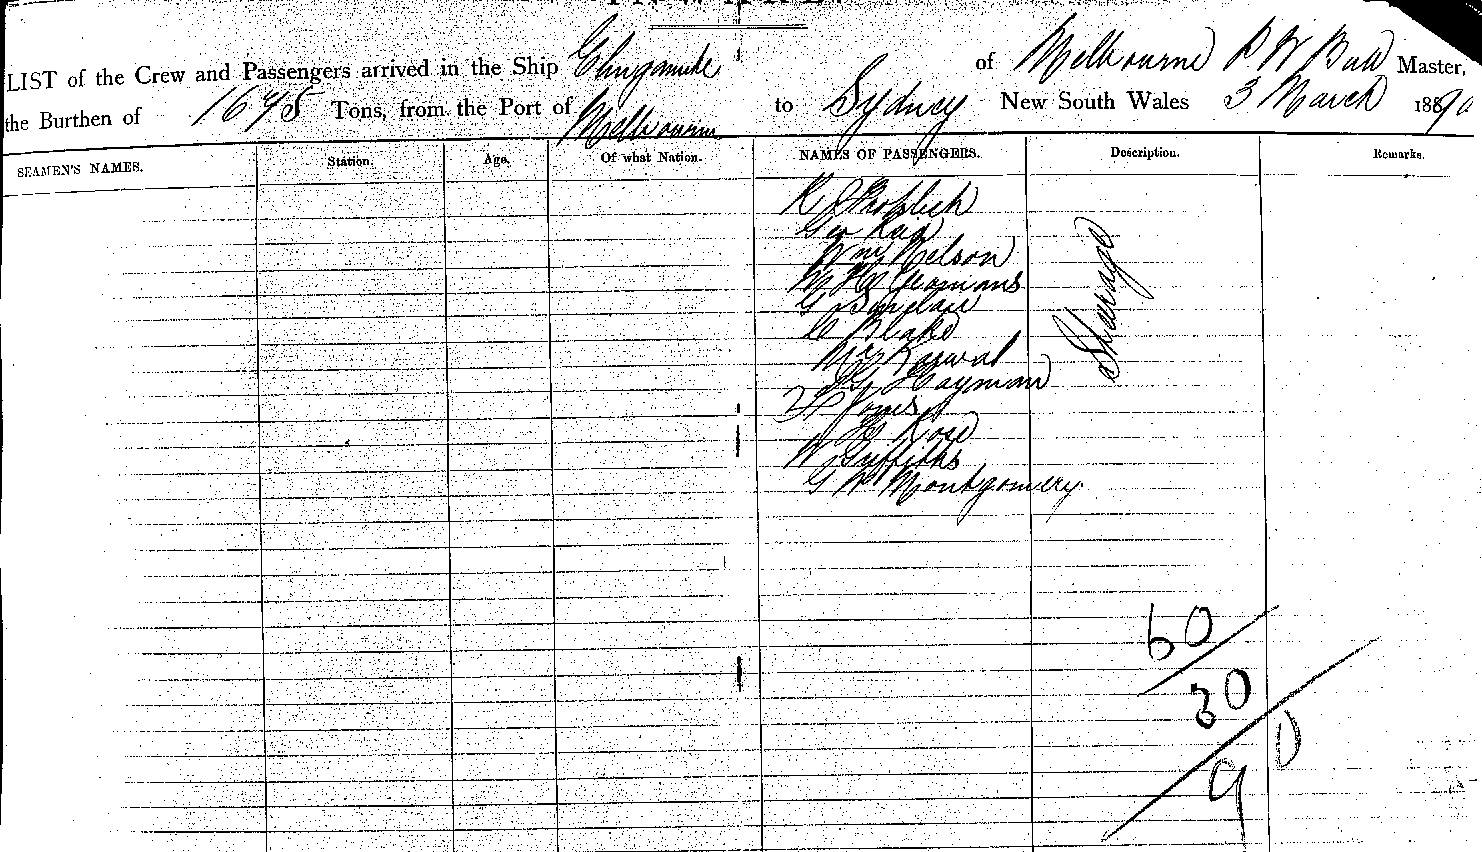 LIST of the Crew and Passengers arrived in the Ship Elingamite of Melbourne P W Bull Master,
the Burthen of 1675 Tons, from the Port of Melbourne to Sydney New South Wales 3 March 1890
SEAMEN'S NAMES. Station. Age. Of what Nation. NAMES OF PASSENGERS. Description. Remarks.
Steerage
Geo
Nelson
Yeomans
G Sinclair
C Blake
Mr
Hayman
Jones
H Rose
W Griffiths
G W Montgomery
60
30
90